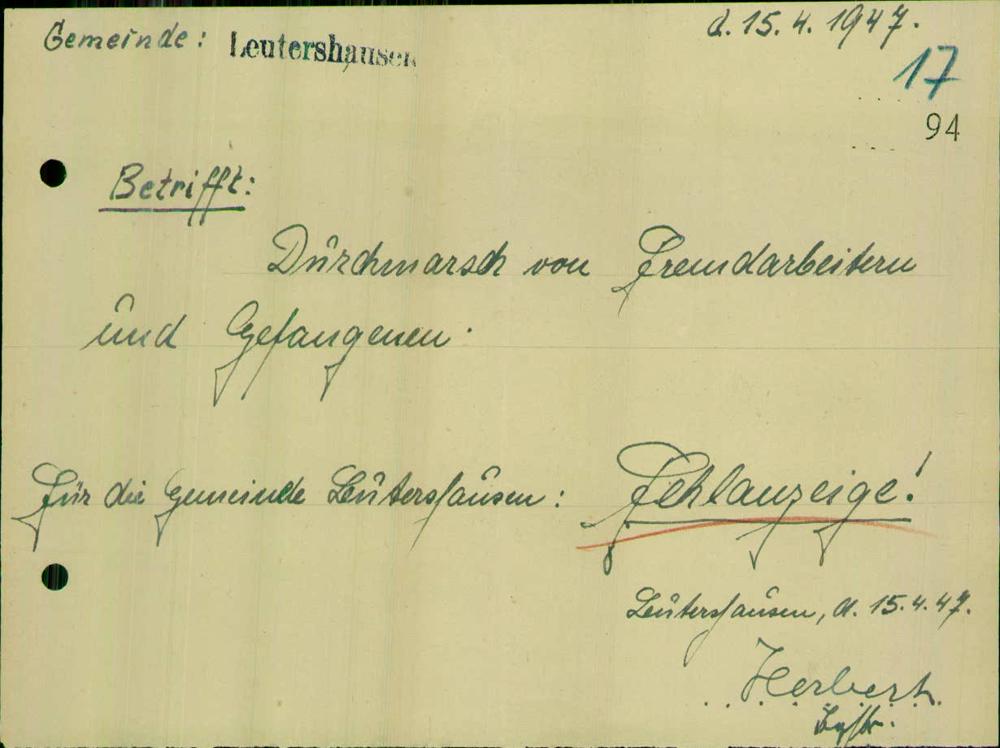 Gemeinde: Leutershausen d. 15.4.1947.
17
94
Betrifft:
Durchmarsch von Fremdarbeitern
und Gefangenen.
für die Gemeinde Leutershausen: Fehlanzeige!
Leutershausen, d. 15.4.47.
Herbert
Bgstr.